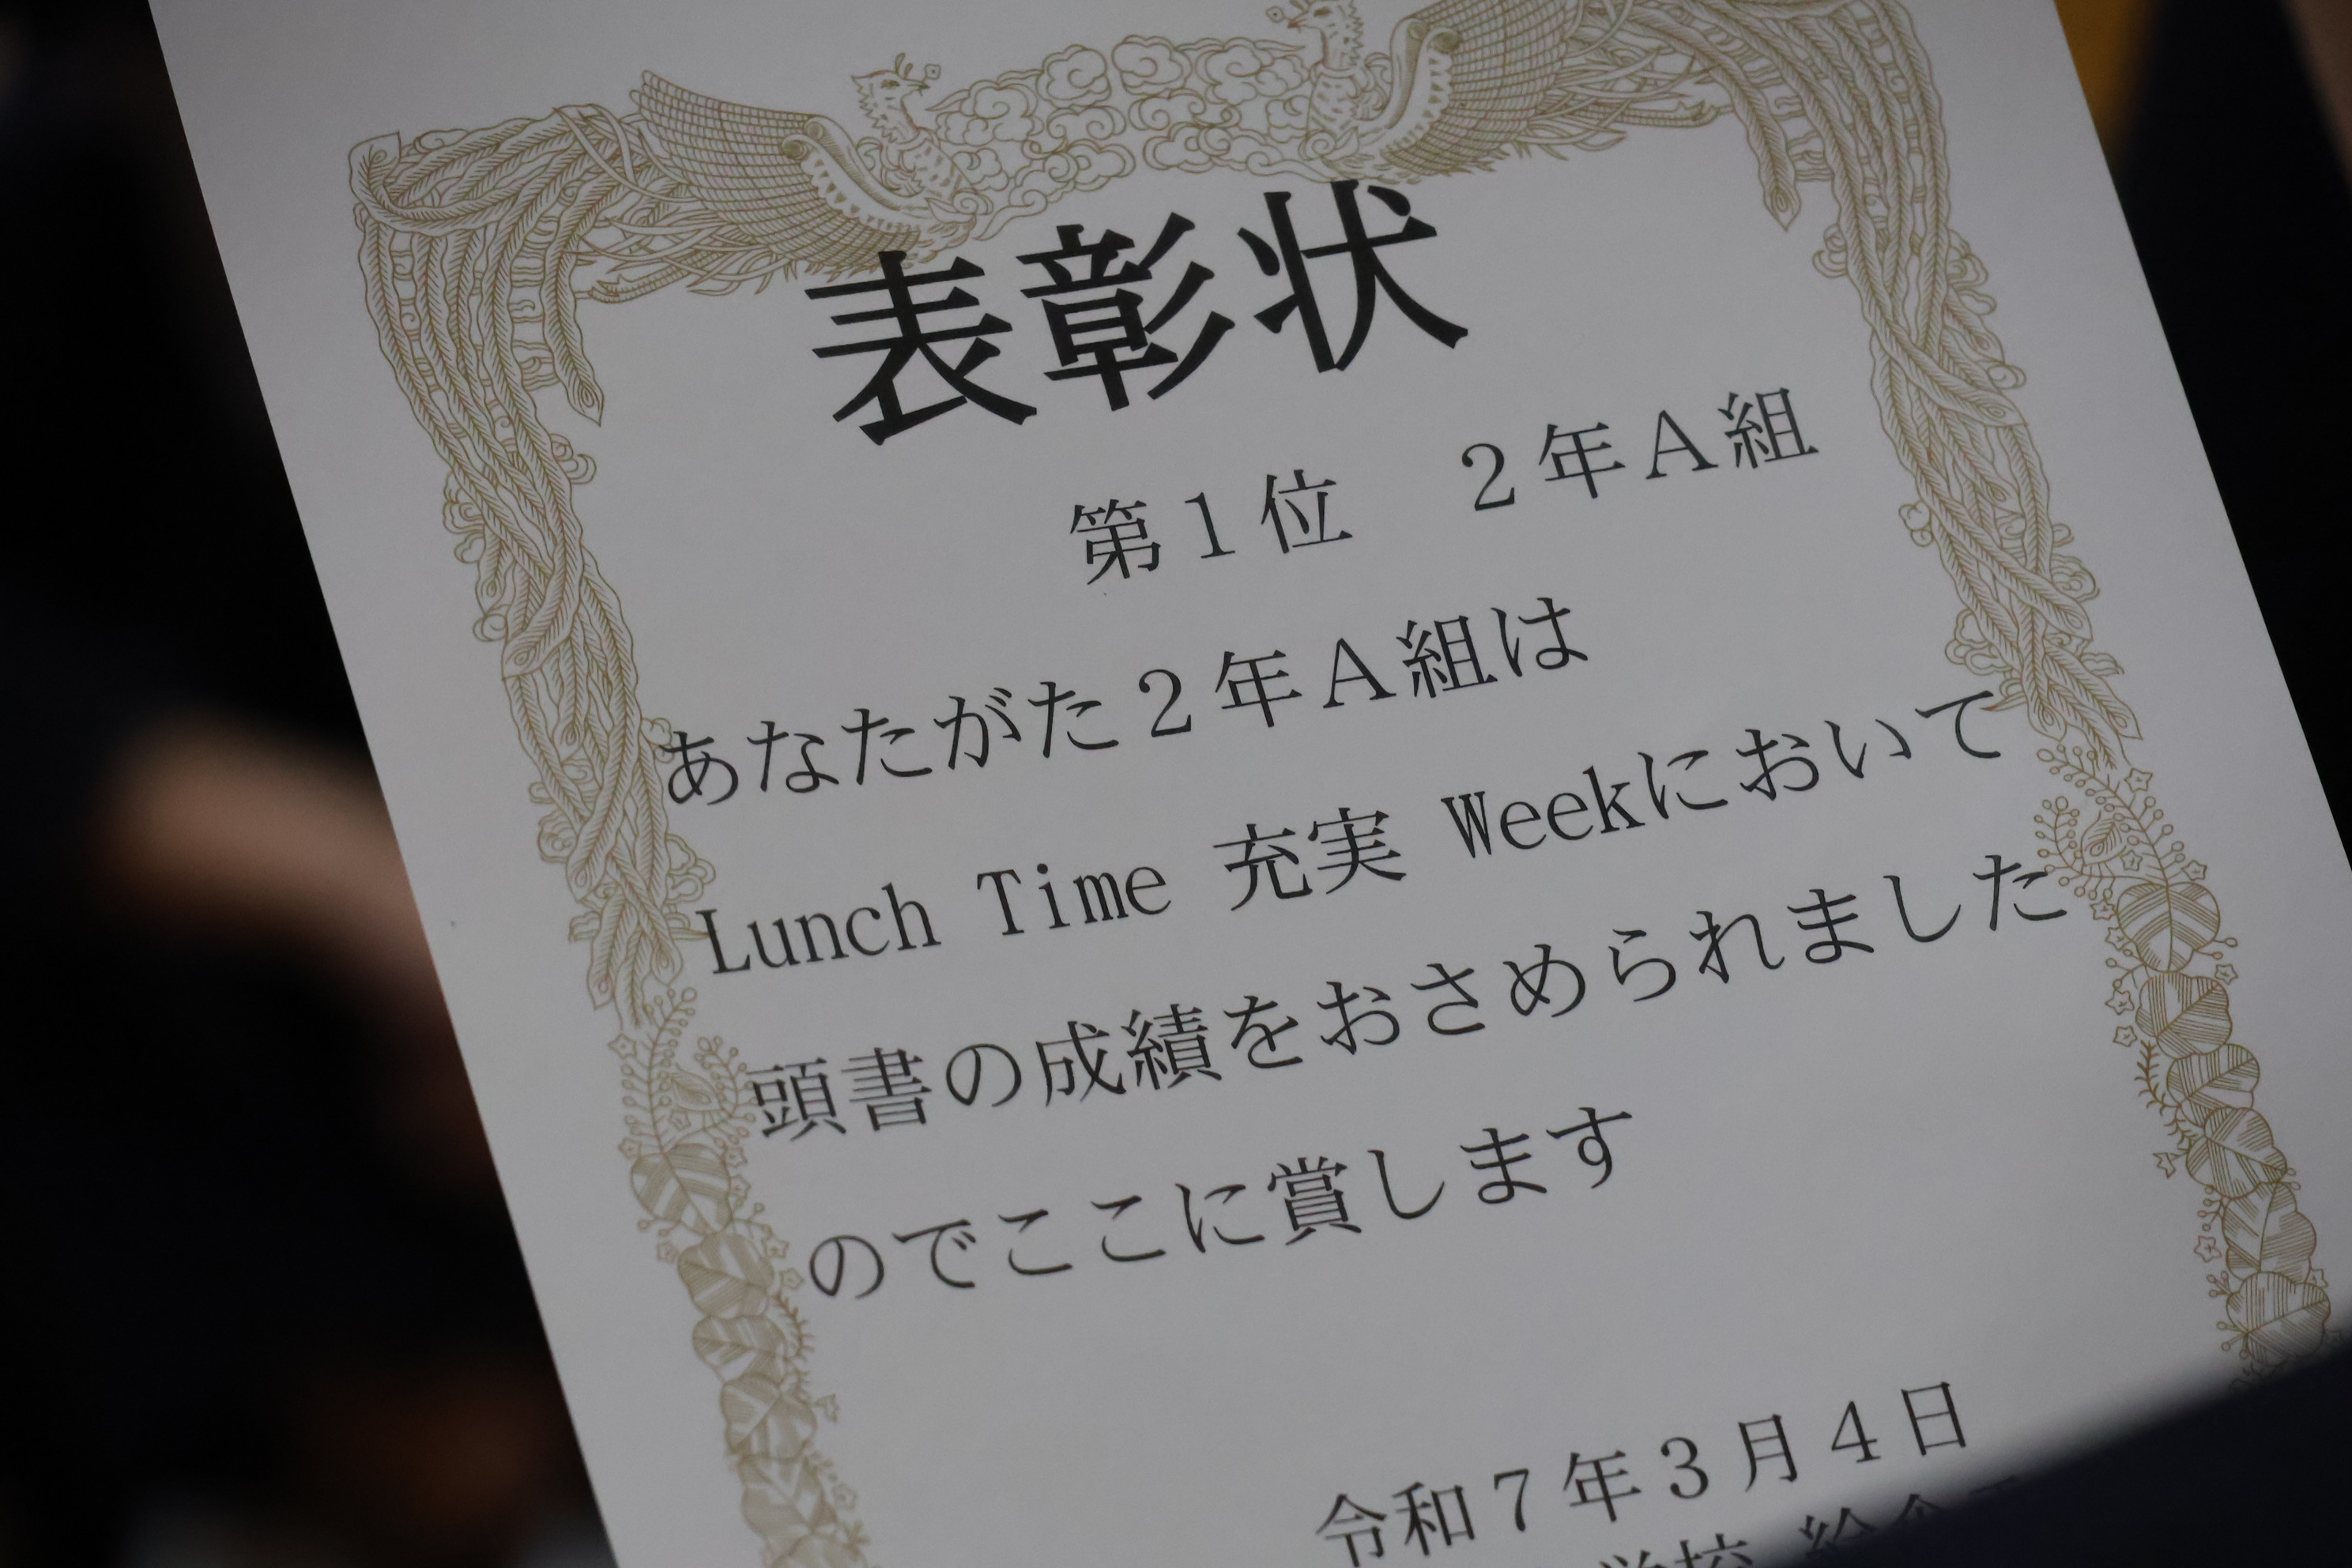 表彰状
第１位　２年Ａ組
あなたがた２年Ａ組は
Lunch Time 充実 Weekにおいて
頭書の成績をおさめられました
のでここに賞します
令和７年３月４日
学校 給食